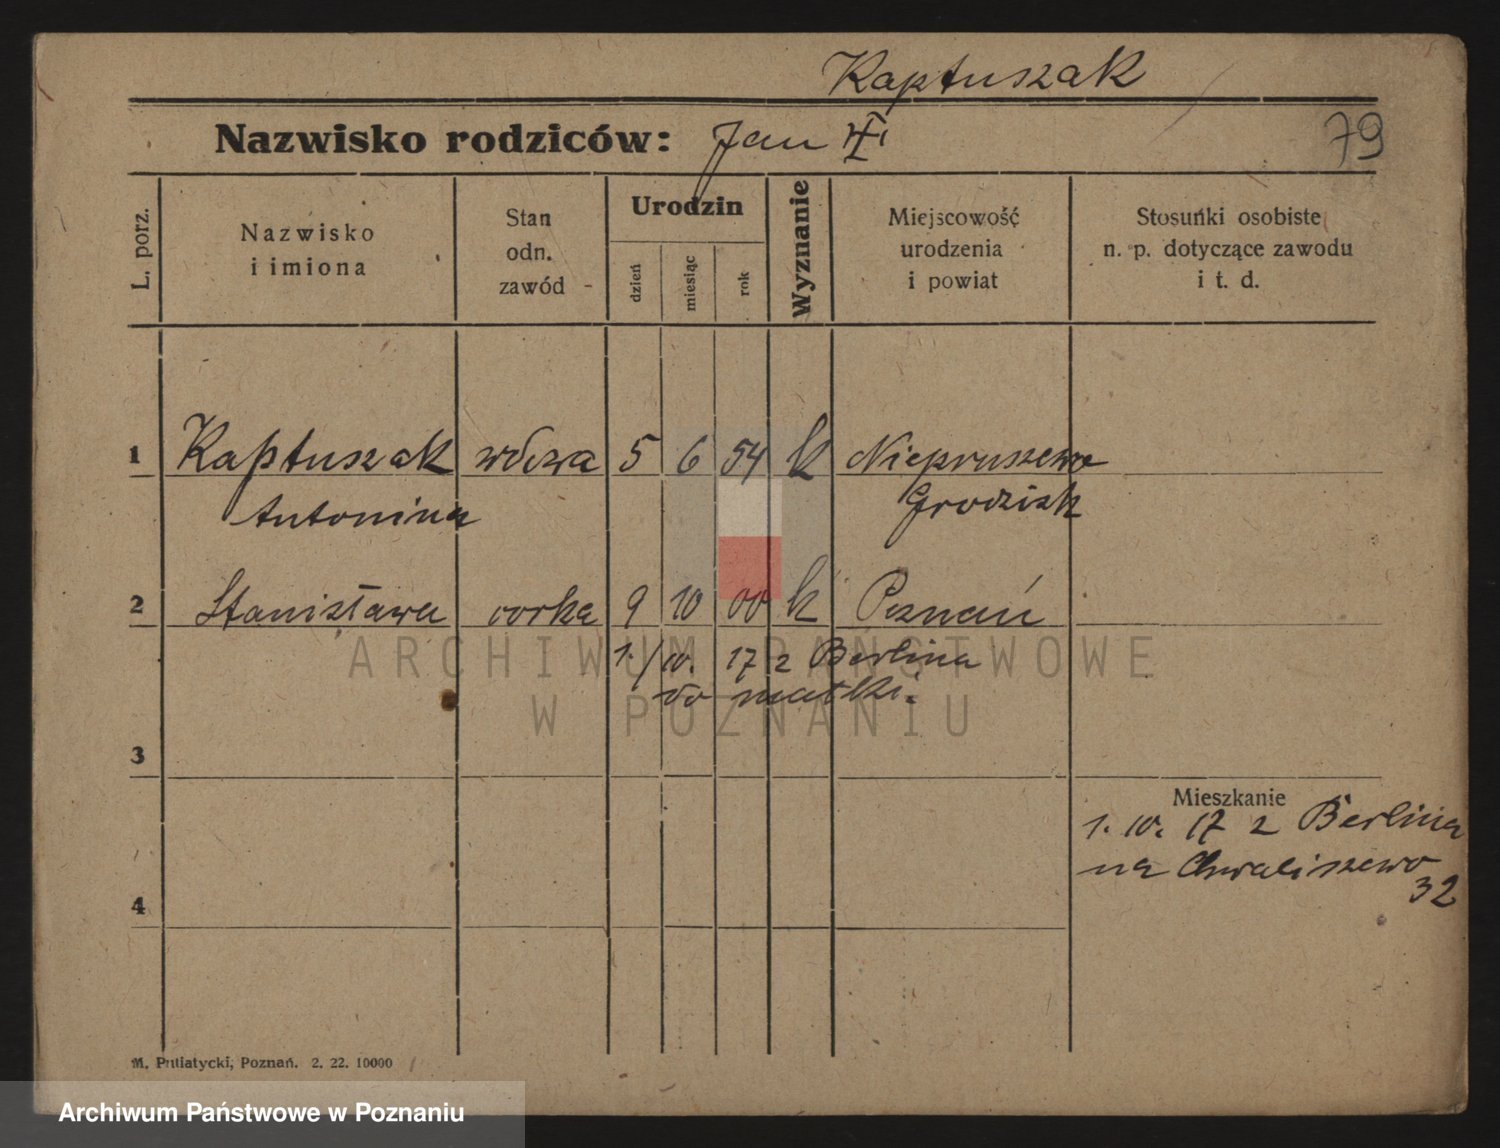 Kaptuszak
Nazwisko rodziców: Jan
79
L. porz.
Nazwisko
i imiona
Stan
odn.
zawód
Urodzin
dzień
miesiąc
rok
Wyznanie
Miejscowość
urodzenia
i powiat
Stosunki osobiste
n. p. dotyczące zawodu
i t. d.
1 Kaptuszak wdowa 5 6 54 k Niepruszewo
Antonina Grodzisk
2 Stanisława córka 9 10 00 k Poznań
1./10. 17 z Berlina
do matki.
3
Mieszkanie
1. 10. 17 z Berlina
na Chwaliszewo
32
4
M. Putiatycki, Poznań. 2. 22. 10000
ARCHIWUM PAŃSTWOWE
W POZNANIU
Archiwum Państwowe w Poznaniu